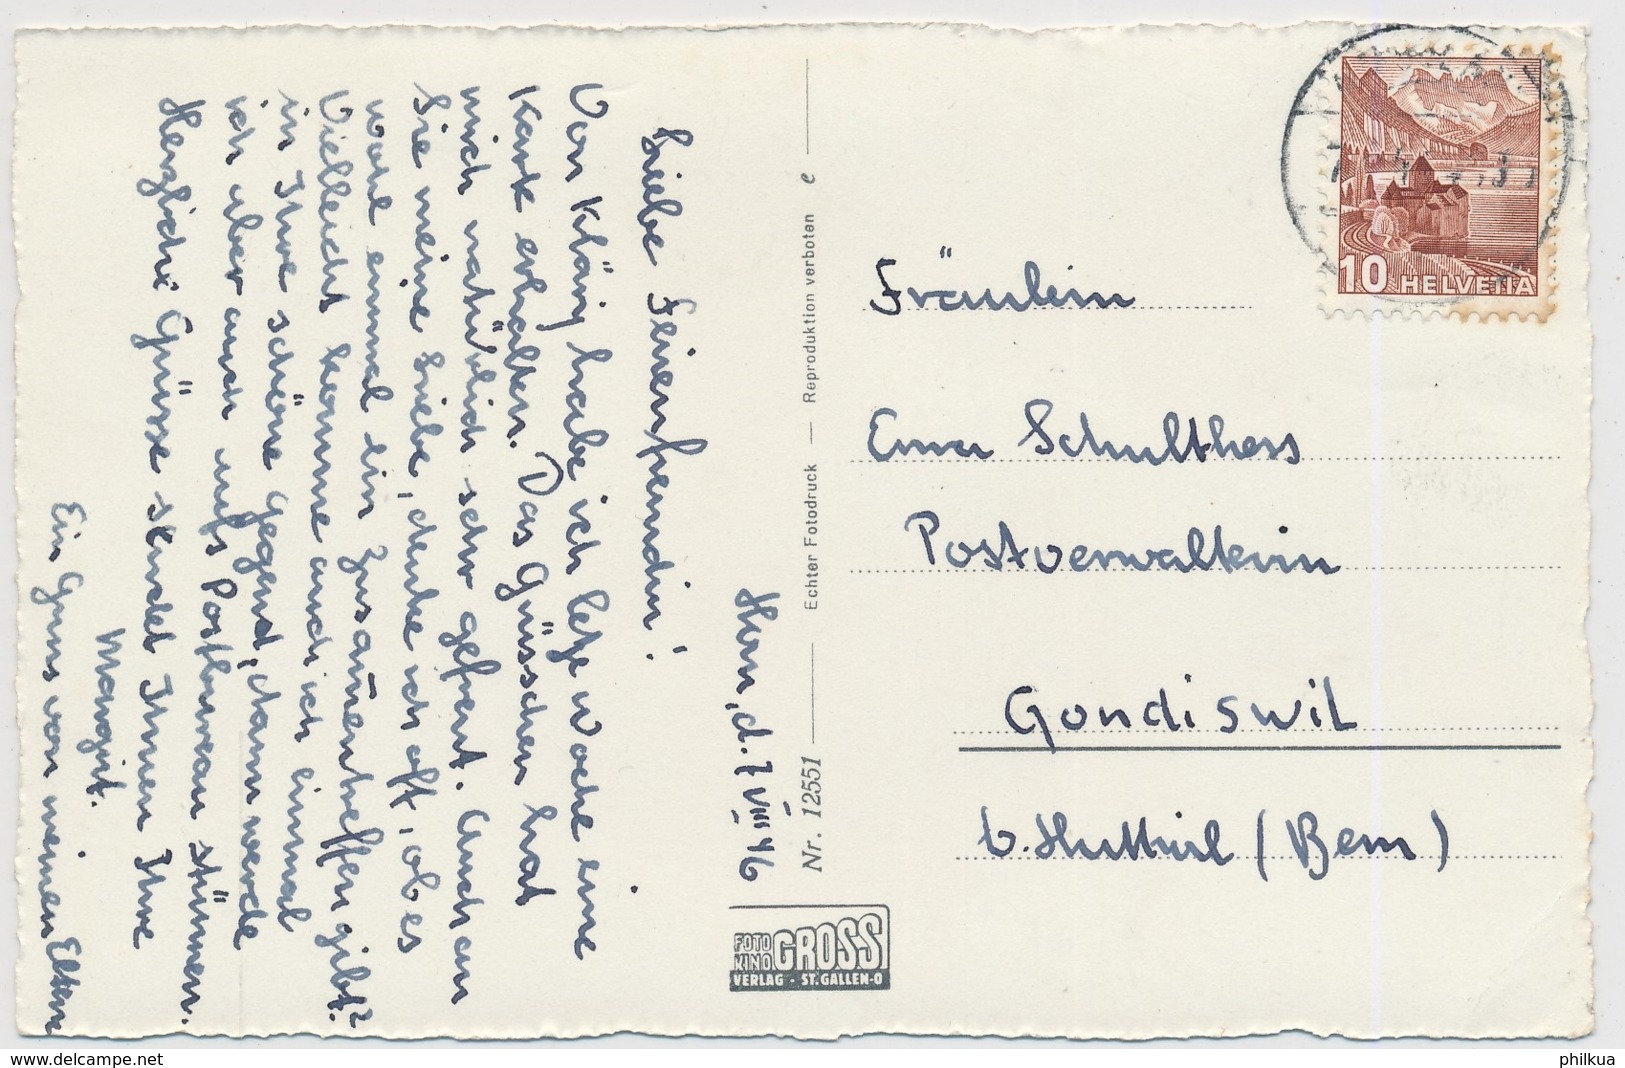 Horn, d. 7 VIII 46
Liebe Feinenfreundin!
Von Kläry habe ich letzte Woche eine
Karte erhalten. Das Grüsschen hat
mich natürlich sehr gefreut. Auch an
Sie meine Liebe, denke ich oft, ob es
wohl einmal ein Zusam̄entreffen gibt?
Vielleicht komme auch ich einmal
in Ihre schöne Gegend, dann werde
ich aber auch aufs Postbureau stürmen.
Herzliche Grüsse sendet Ihnen Ihre
Margrit.
Ein Gruss von meinen Eltern
Nr. 12551 Echter Fotodruck — Reproduktion verboten e
FOTO KINO GROSS
VERLAG - ST. GALLEN-O
10 HELVETIA
Fräulein
Erna Schulthess
Postverwalterin
Gondiswil
b. Huttwil (Bern)
philkua
www.delcampe.net